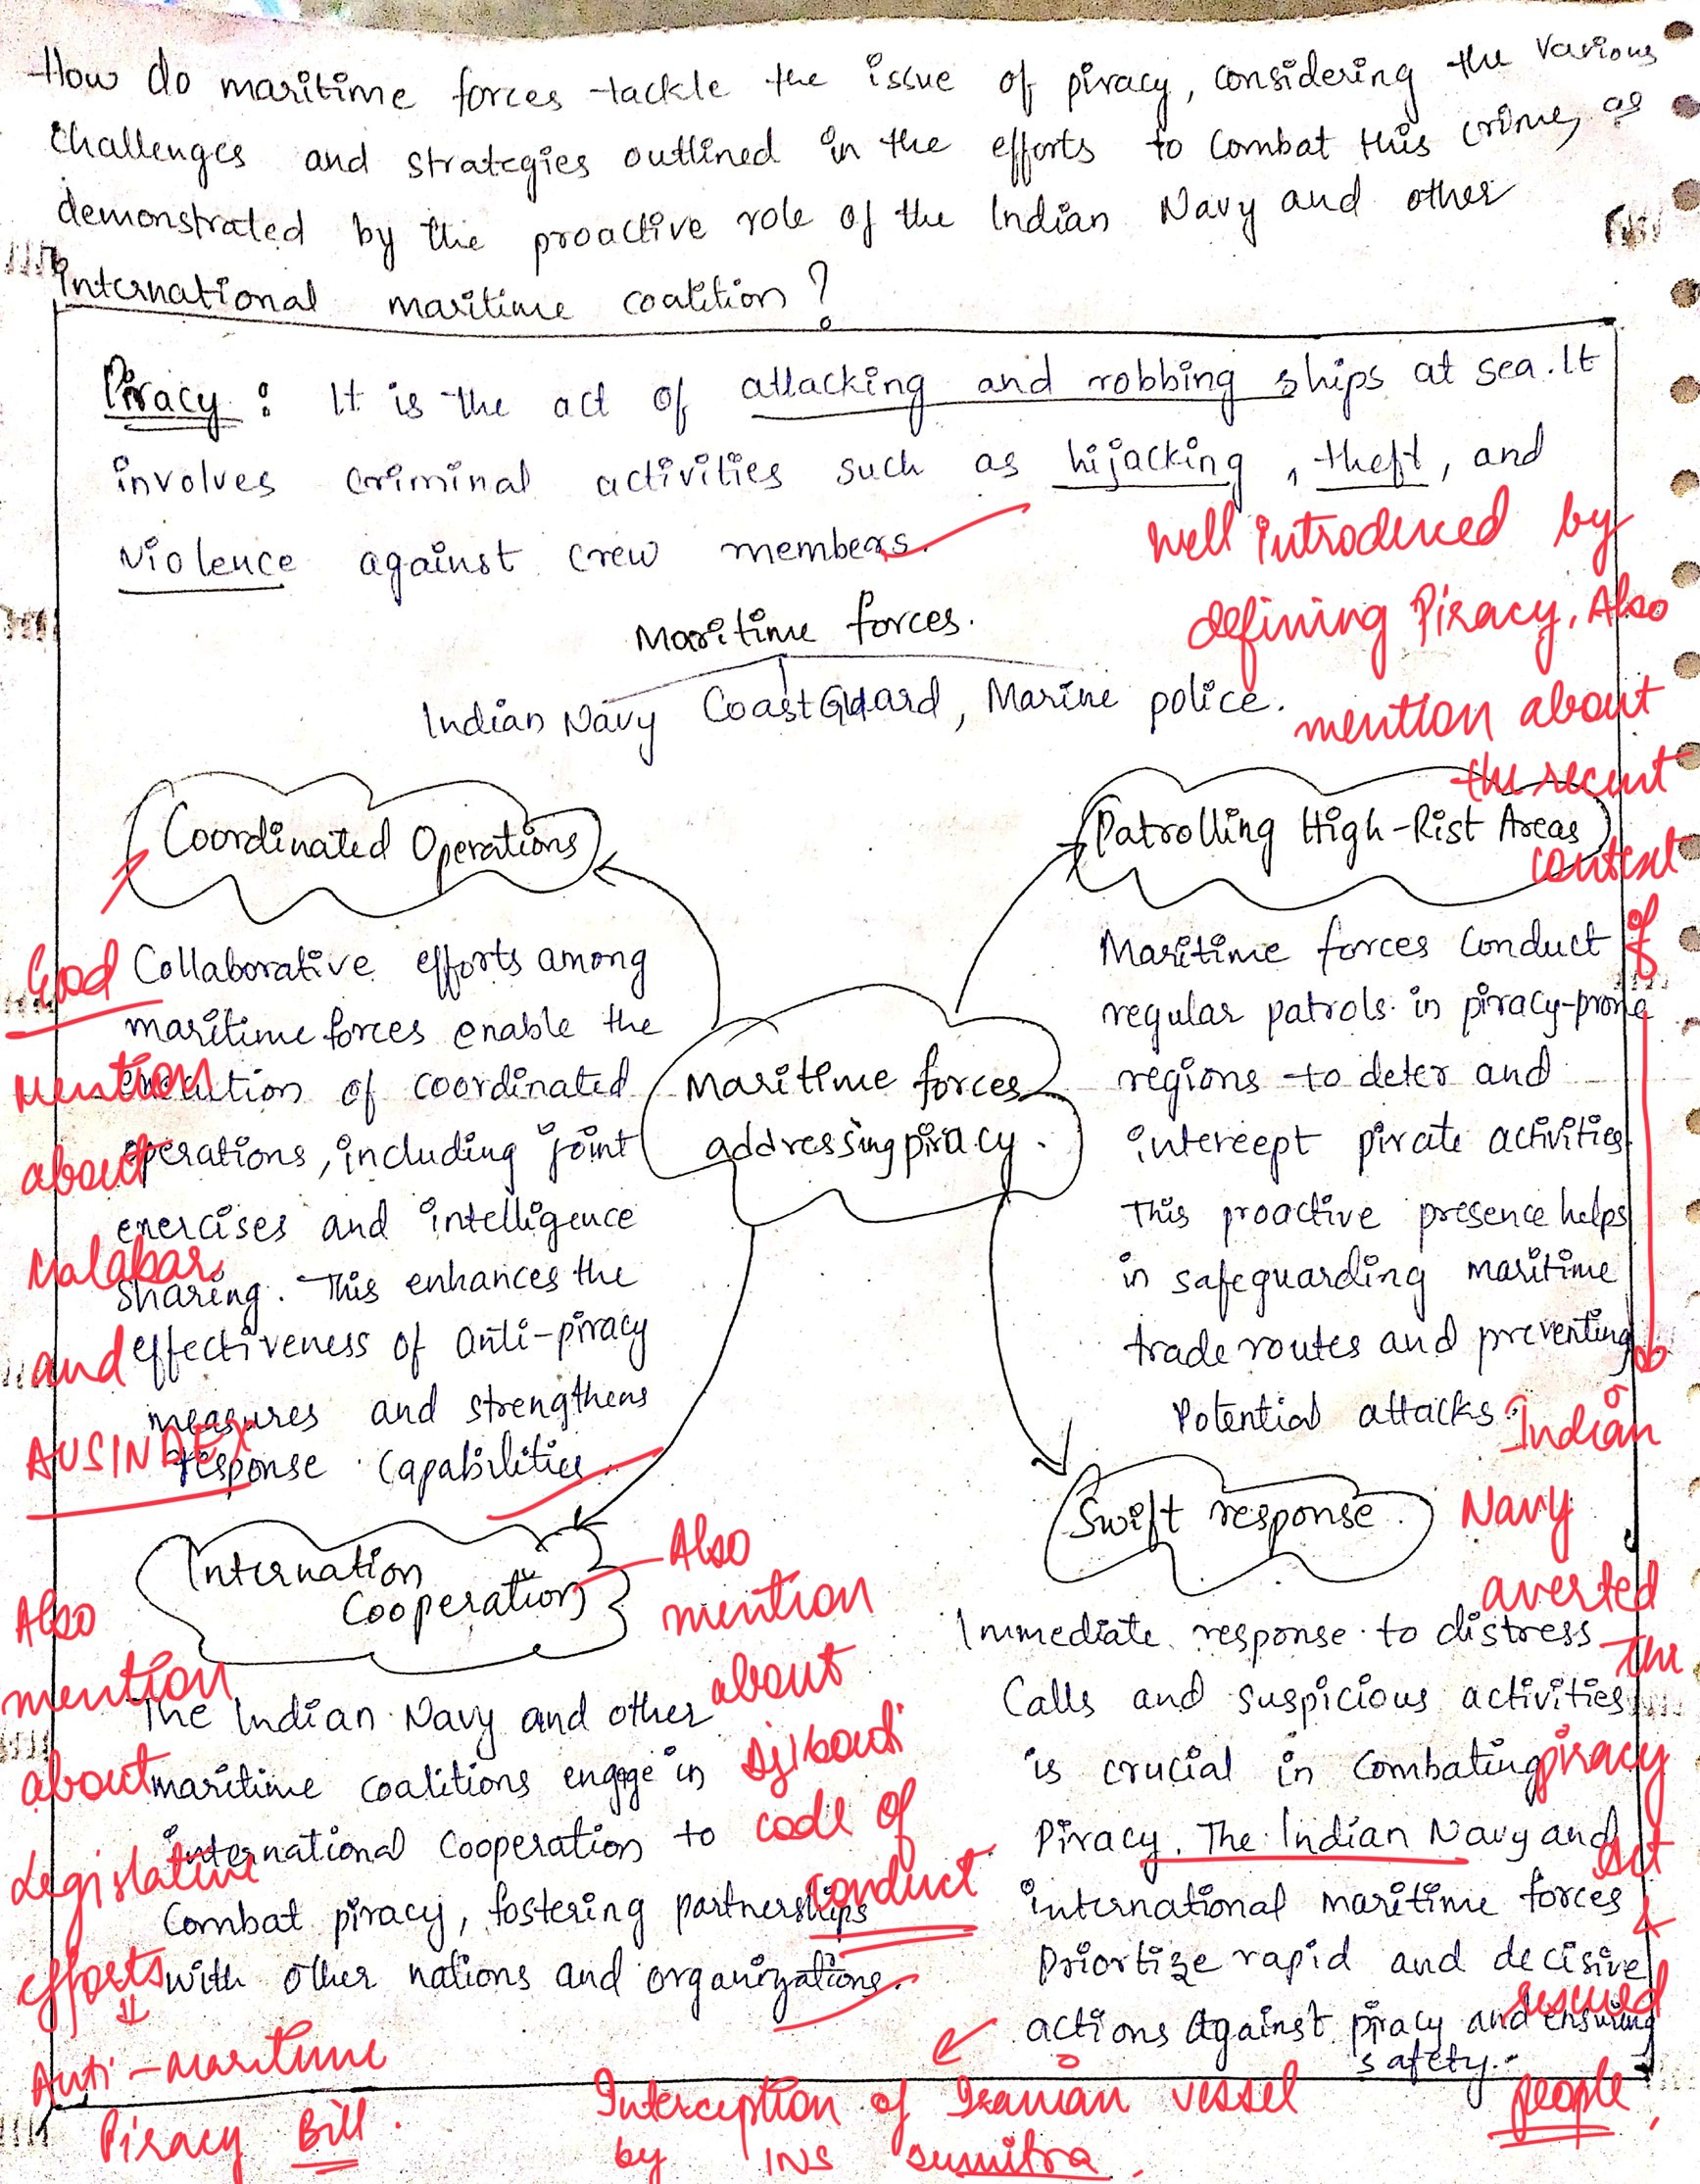 How do maritime forces tackle the issue of piracy, considering the various
challenges and strategies outlined in the efforts to combat this crime, as
demonstrated by the proactive role of the Indian Navy and other
international maritime coalition?
Piracy: It is the act of attacking and robbing ships at sea. It
involves criminal activities such as hijacking, theft, and
violence against crew members.
well introduced by
defining Piracy. Also
mention about
the recent
context
of
Indian
Navy
averted
the
piracy
act
&
rescued
people.
Maritime forces.
Indian Navy Coast Guard, Marine police.
Maritime forces
addressing piracy.
Coordinated Operations
Collaborative efforts among
maritime forces enable the
execution of coordinated
operations, including joint
exercises and intelligence
sharing. This enhances the
effectiveness of anti-piracy
measures and strengthens
response capabilities.
Good
mention
about
Malabar
and
AUSINDEX
Patrolling High-Rist Areas
Maritime forces conduct
regular patrols in piracy-prone
regions to deter and
intercept pirate activities
This proactive presence helps
in safeguarding maritime
trade routes and preventing
Potential attacks.
Internation
Cooperation
Also
mention
about
Djibouti
code of
conduct
The Indian Navy and other
maritime coalitions engage in
international Cooperation to
Combat piracy, fostering partnerships
with other nations and organizations.
Also
mention
about
Legislative
efforts
Anti-maritime
Piracy Bill.
Swift response.
Immediate response to distress
Calls and suspicious activities
is crucial in Combating
Piracy. The Indian Navy and
international maritime forces
Priortize rapid and decisive
actions against piracy and ensuring
safety.
Interception of Iranian vessel
by INS sumitra.